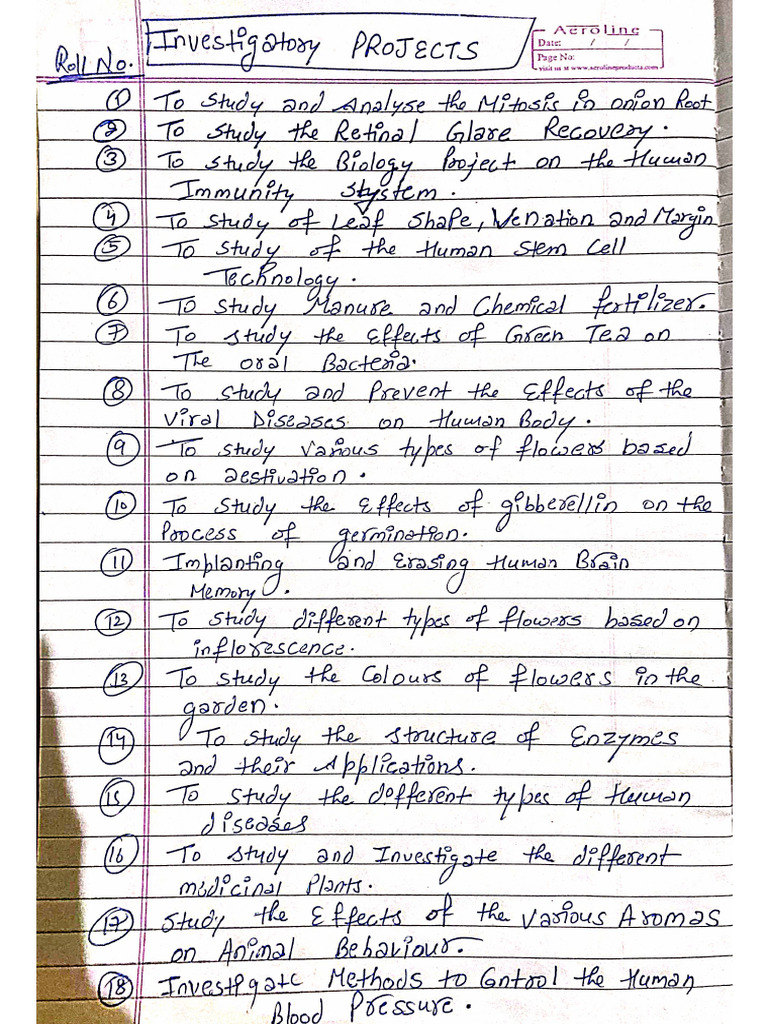 Investigatory PROJECTS
Aeroline
Date: / /
Page No:
visit us at www.aerolineproducts.com
Roll No.
1 To study and Analyse the Mitosis in onion Root
2 To study the Retinal Glare Recovery.
3 To study the Biology Project on the Human
Immunity System.
4 To study of Leaf Shape, Venation and Margin
5 To study of the Human Stem Cell
Technology.
6 To study Manure and Chemical fertilizer.
7 To study the Effects of Green Tea on
The oral Bacteria.
8 To study and Prevent the Effects of the
Viral Diseases on Human Body.
9 To study various types of flowers based
on aestivation.
10 To study the Effects of gibberellin on the
Process of germination.
11 Implanting and Erasing Human Brain
Memory.
12 To study different types of flowers based on
inflorescence.
13 To study the Colours of flowers in the
garden.
14 To study the structure of Enzymes
and their Applications.
15 To study the different types of Human
diseases
16 To study and Investigate the different
medicinal Plants.
17 Study the Effects of the Various Aromas
on Animal Behaviour.
18 Investigate Methods to Control the Human
Blood Pressure.